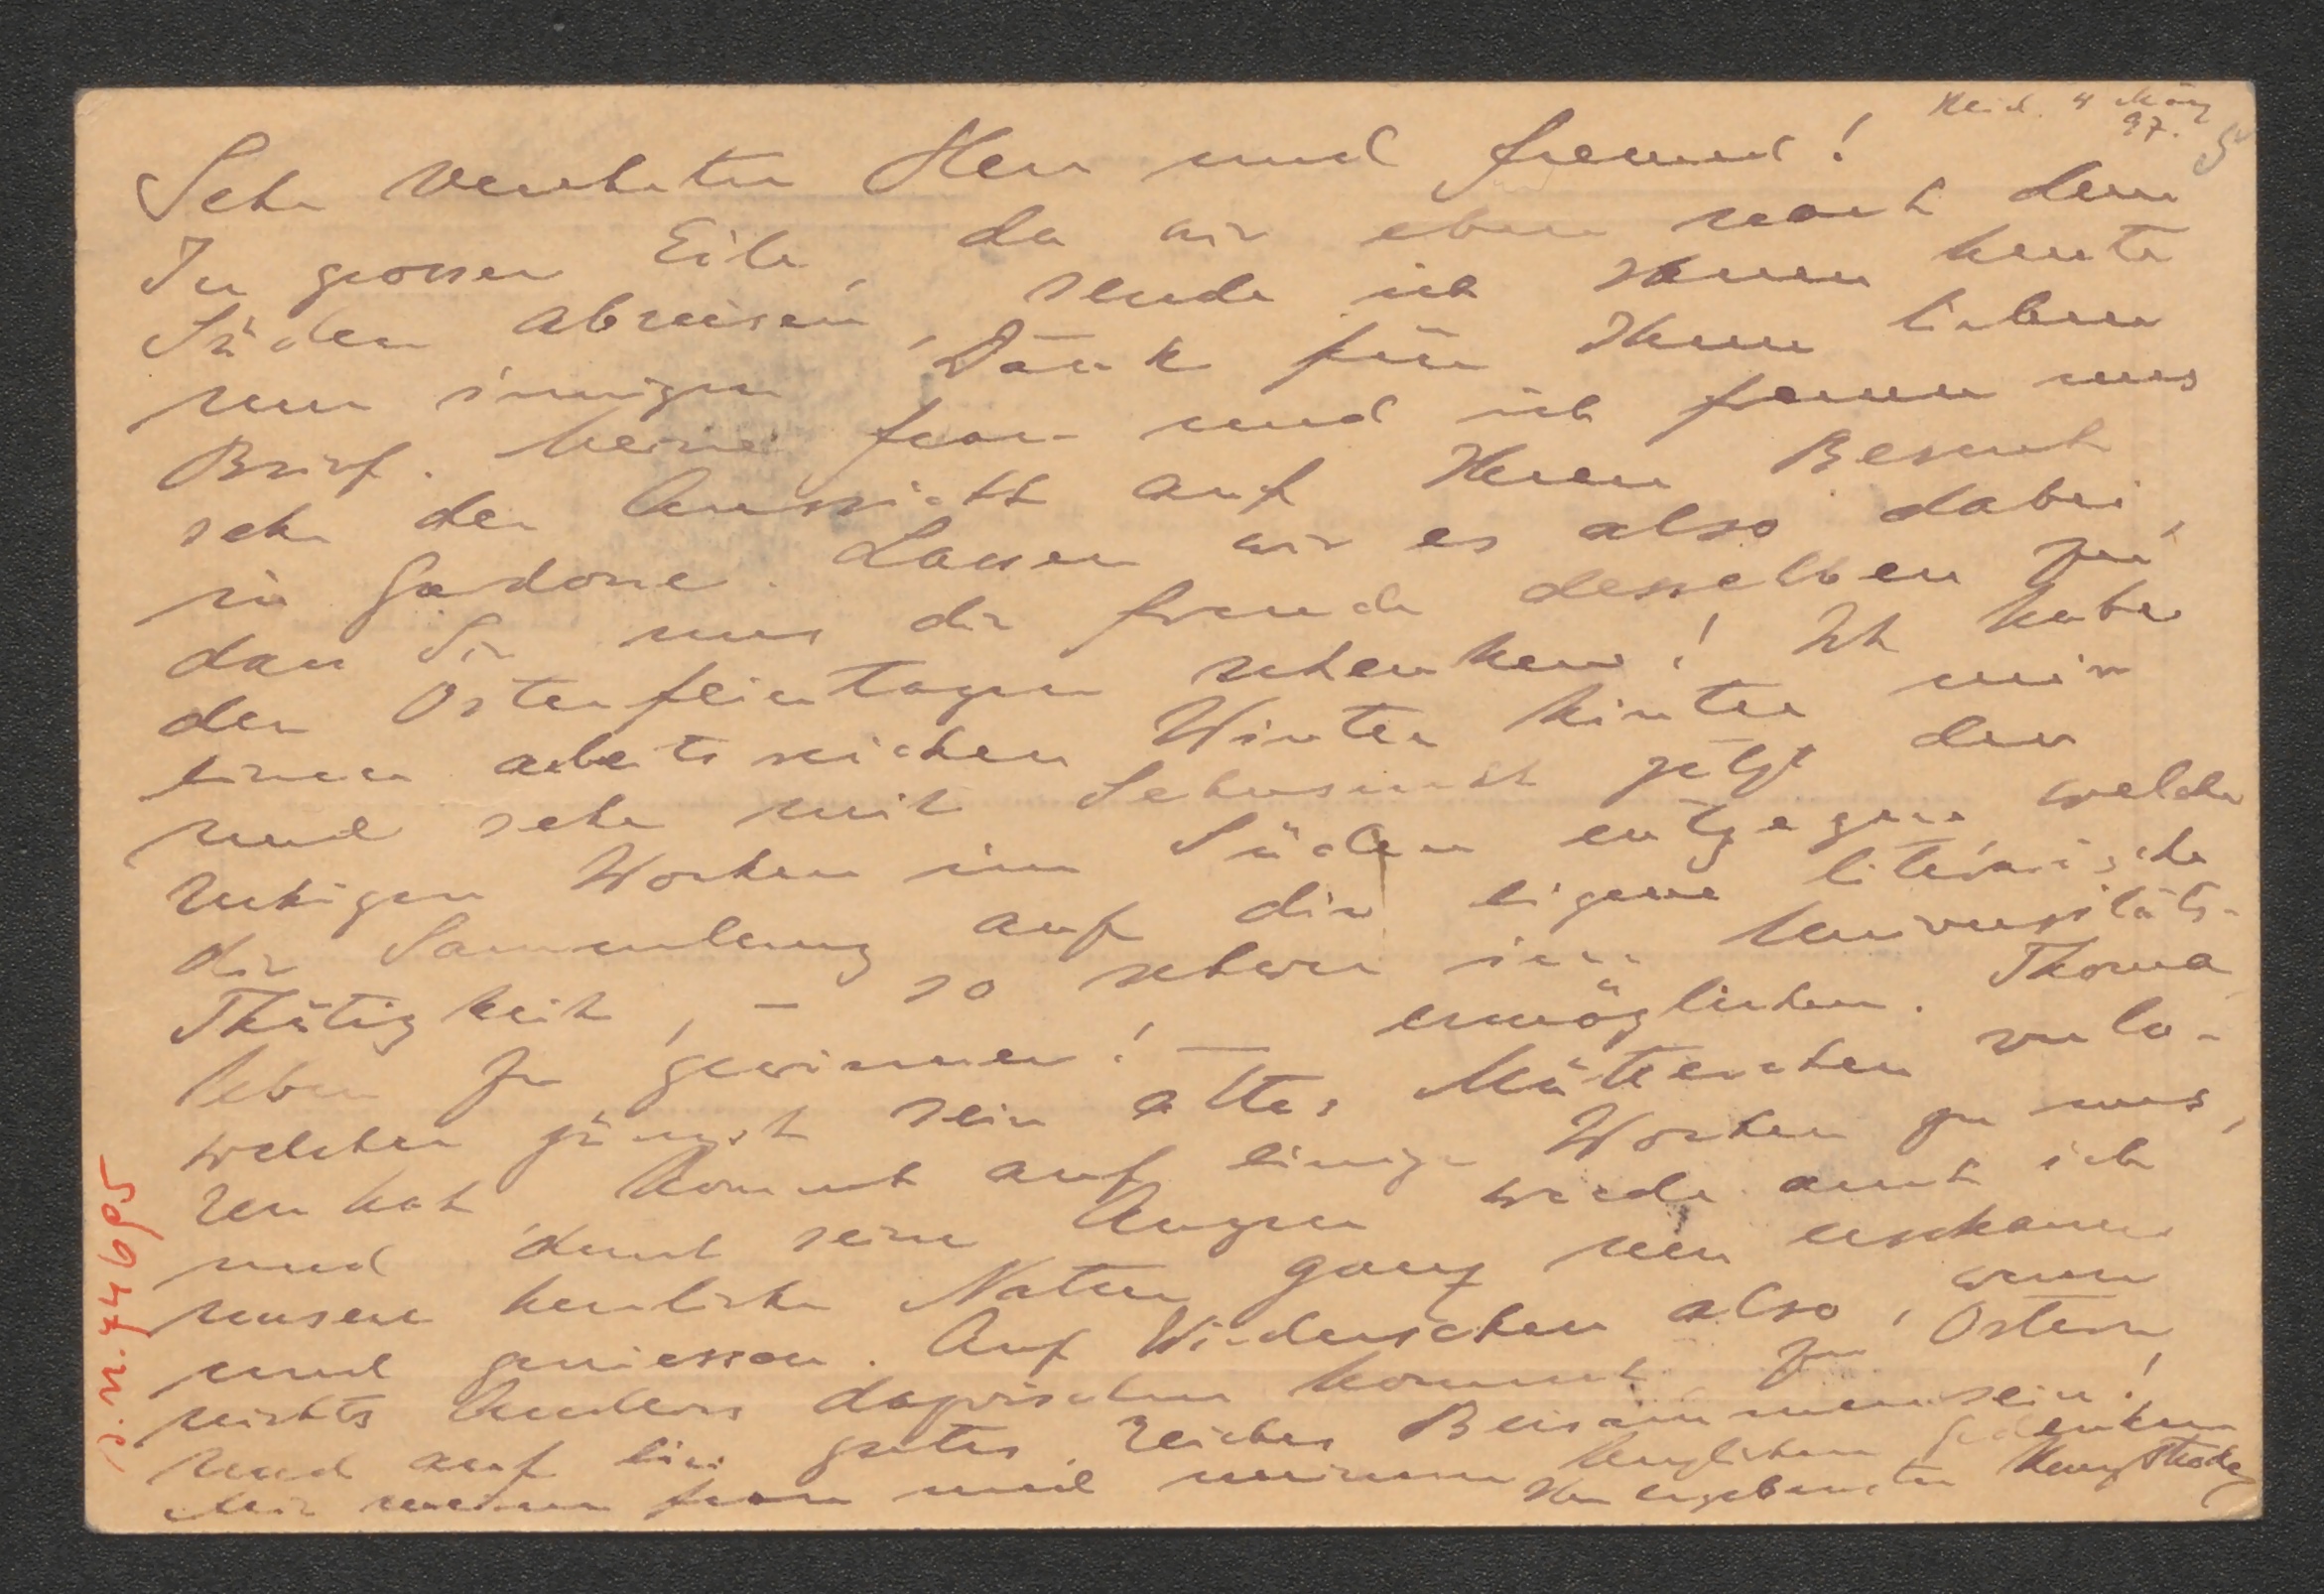 Heid. 4 März
97.
Sehr verehrter Herr und Freund!
In grosser Eile, da wir eben nach dem
Süden abreisen, sende ich Ihnen heute
nur innigen Dank für Ihren lieben
Brief. Meine Frau und ich freuen uns
sehr der Aussicht auf Ihren Besuch
in Gardone. Lassen wir es also dabei,
dass Sie uns die Freude desselben zu
den Osterfeiertagen schenken! Ich habe
einen arbeitsreichen Winter hinter mir
und sehe mit Sehnsucht jetzt den
ruhigen Wochen im Süden entgegen welche
die Sammlung auf die eigene literarische
Thätigkeit, – so schwer im Universitäts-
leben zu gewinnen! – ermöglichen. Thoma,
welcher jüngst sein altes Mütterchen verlo-
ren hat kommt auf einige Wochen zu uns,
und durch seine Augen werde auch ich
unsere herrliche Natur ganz neu erschauen
und geniessen. Auf Wiedersehen also, wenn
nichts Anderes dazwischen kommt zu Ostern,
und auf ein gutes, reiches Beisammensein!
Mit meiner Frau und meinem herzlichen Gedenken
Ihr ergebenster Henry Thode
I.N. 74695